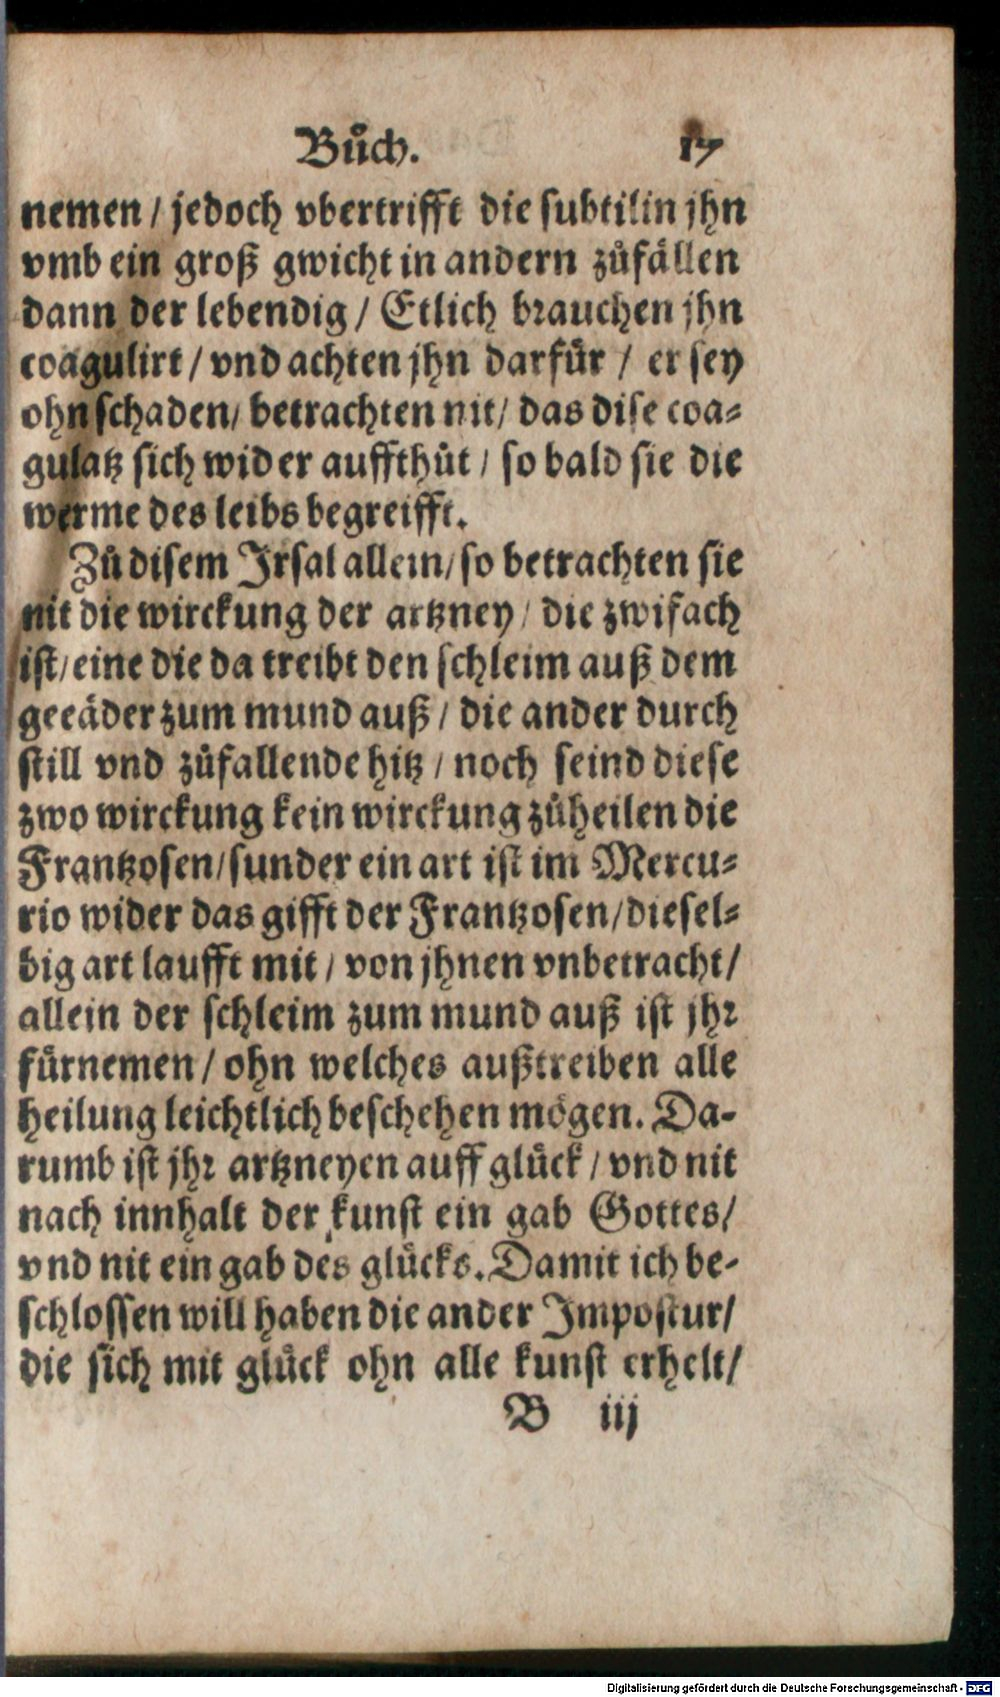 Bůch. 17
nemen / jedoch vbertrifft die subtilin jhn
vmb ein groß gwicht in andern zůfällen
dann der lebendig / Etlich brauchen jhn
coagulirt / vnd achten jhn darfür / er sey
ohn schaden / betrachten nit / das dise coa⸗
gulatz sich wider auffthůt / so bald sie die
werme des leibs begreifft.
Zů disem Irsal allein / so betrachten sie
nit die wirckung der artzney / die zwifach
ist / eine die da treibt den schleim auß dem
geeäder zum mund auß / die ander durch
still vnd zůfallende hitz / noch seind diese
zwo wirckung kein wirckung zůheilen die
Frantzosen / sunder ein art ist im Mercu⸗
rio wider das gifft der Frantzosen / diesel⸗
big art laufft mit / von jhnen vnbetracht /
allein der schleim zum mund auß ist jhr
fürnemen / ohn welches außtreiben alle
heilung leichtlich beschehen mögen. Da-
rumb ist jhr artzneyen auff glück / vnd nit
nach innhalt der kunst ein gab Gottes /
vnd nit ein gab des glücks. Damit ich be-
schlossen will haben die ander Impostur /
die sich mit glück ohn alle kunst erhelt /
B iij
Digitalisierung gefördert durch die Deutsche Forschungsgemeinschaft - DFG